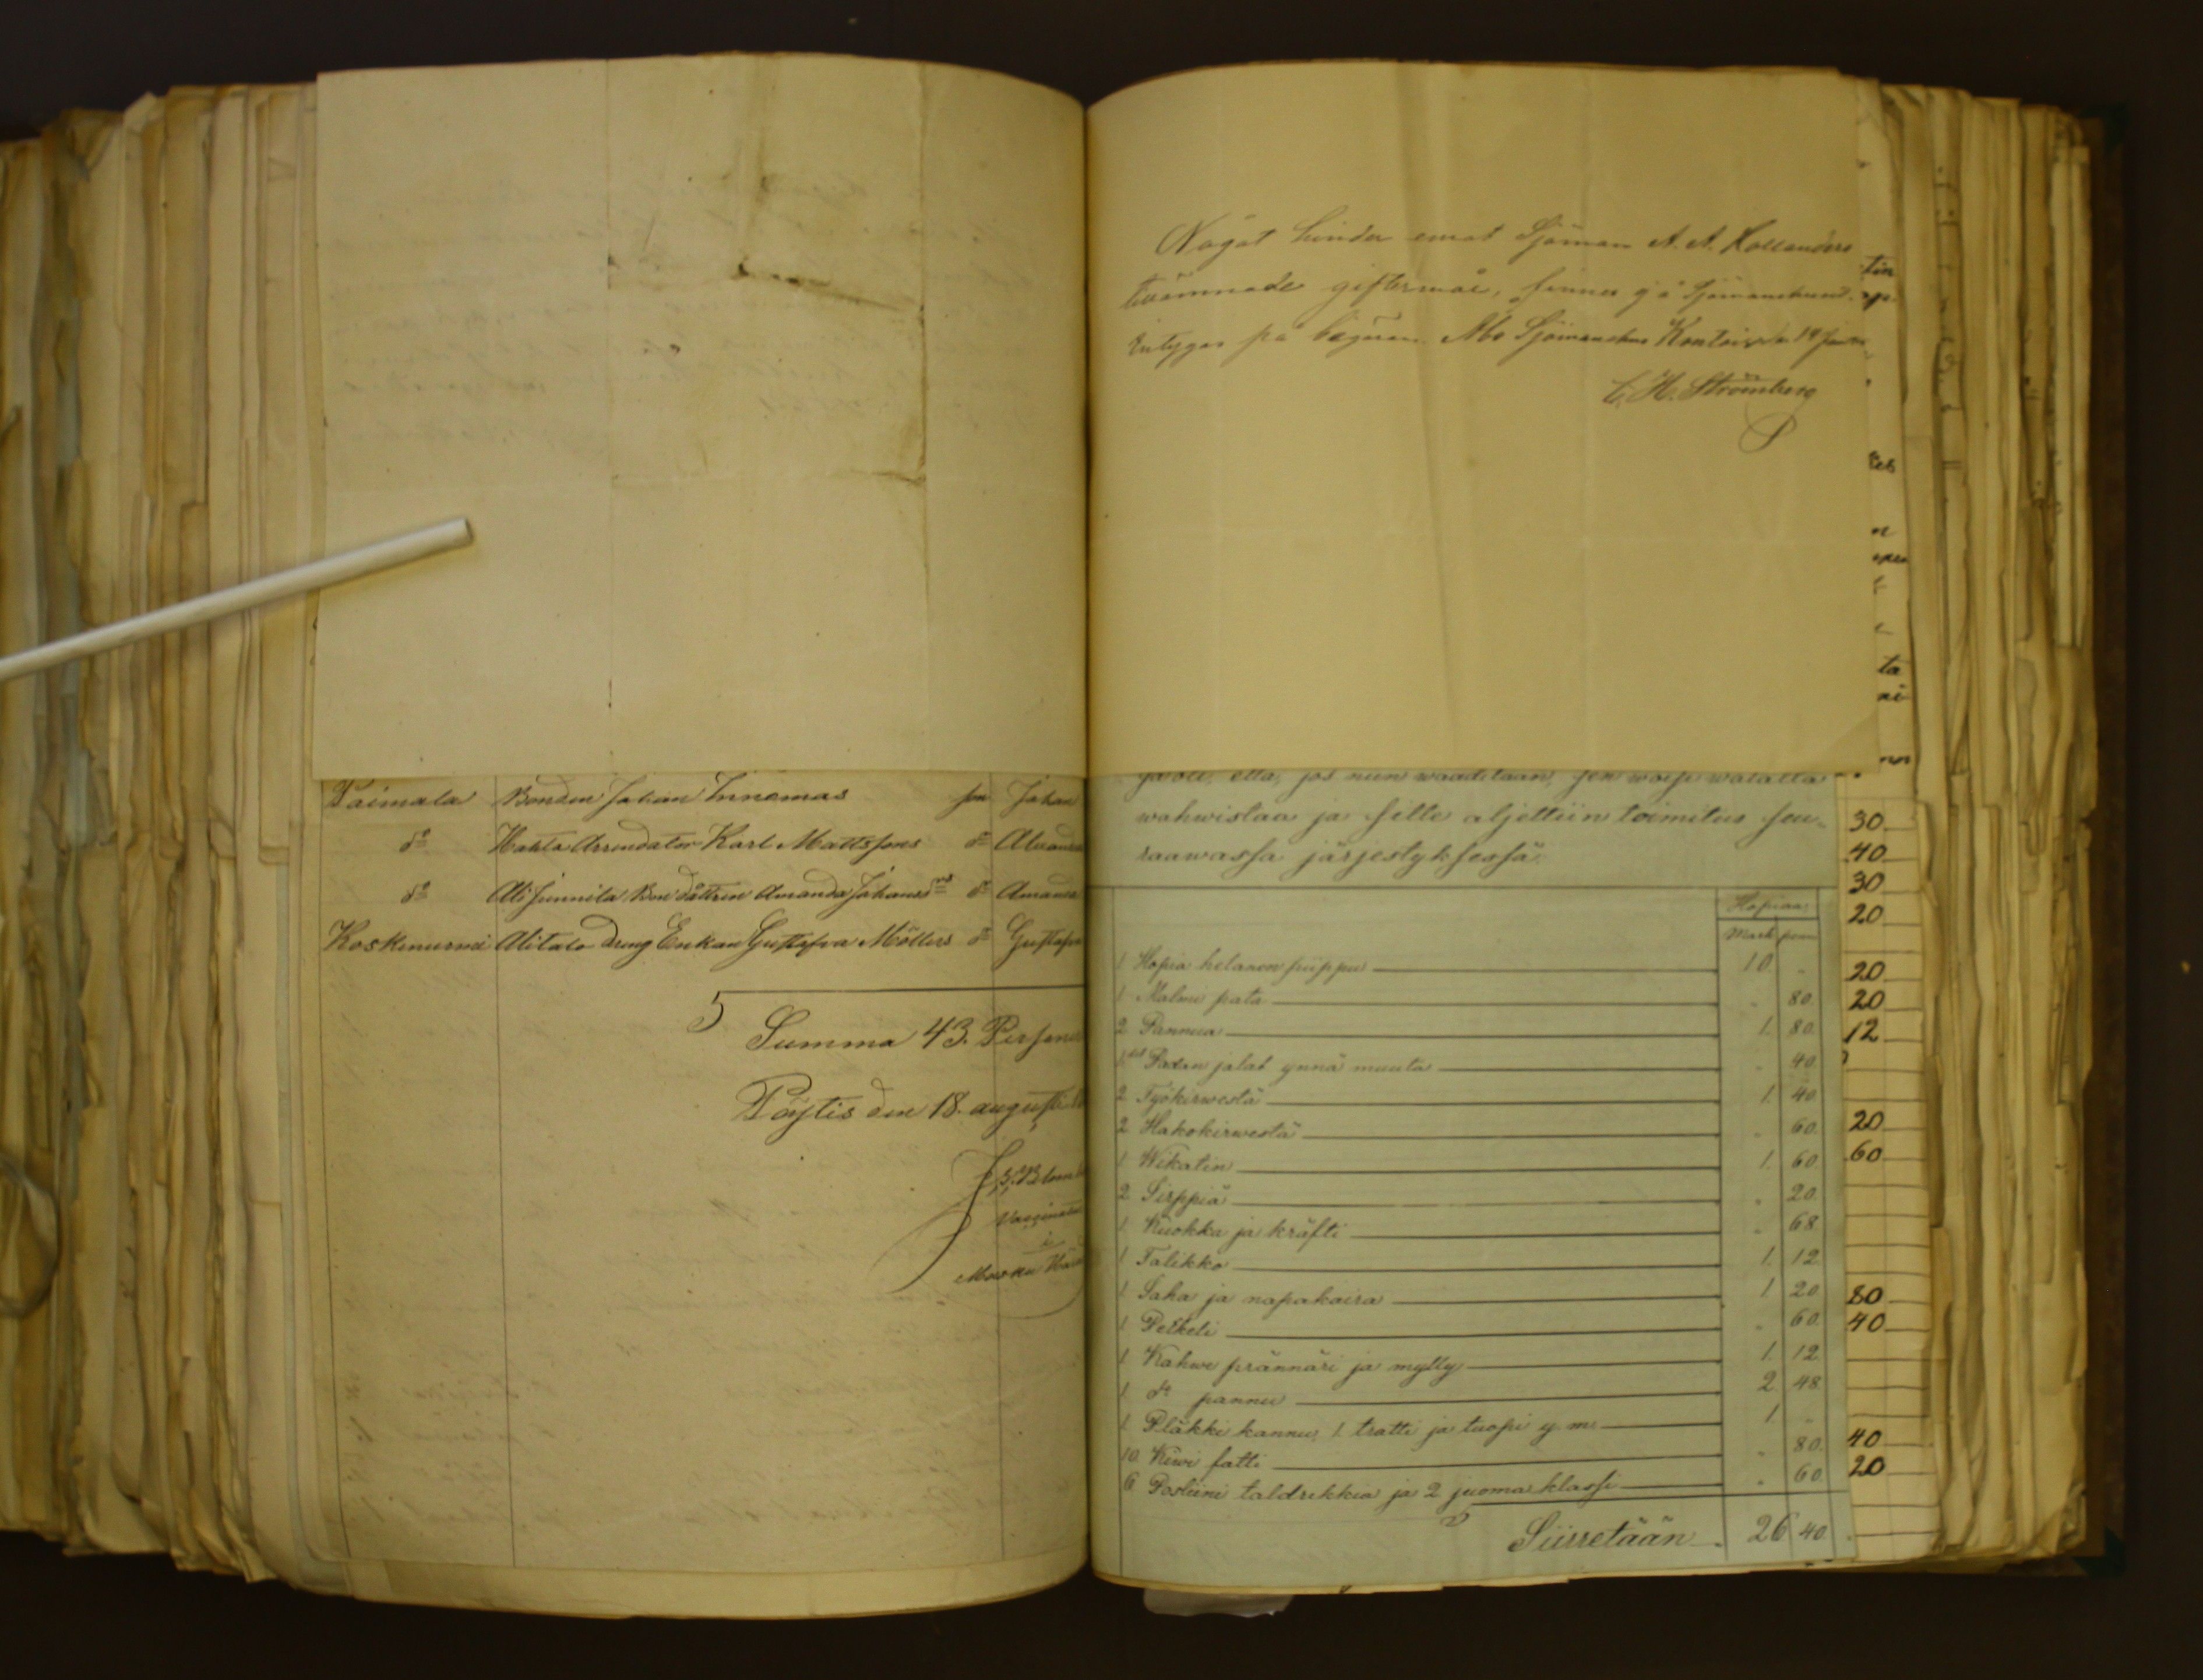 Paimala Bonden Johan Innamas son Johan
do Hakla Arrendator Karl Mattssons do
do Ali Junnila Bon dottren Amanda Johansd do Amanda
Koskinurmi Alitalo dreng Enkan Gustafva Möllers do Gustafva
Summa 43. Persone
Pöytis den 18. augusti
Något hinder emot Sjöman A. A. Hollanders
tillämnade giftermål, finnes ej å
Intygas på begäran. Åbo Sjömanshus Kontoir
C. H. Strömberg
ja oli, että, jos niin waaditaan, sen woipi walalla
wahwistaa ja sille aljettiin toimitus seu-
raawassa järjestyksessä.
Hopiaa:
Mark penn
1 Hopia helanen piippu 10. "
1 Malmi pata " 80.
2 Pannua 1. 80.
Padan jalat ynnä muuta " 40.
2 Työkirwestä 1. 40.
2 Hakokirwestä " 60.
1 Wikatin 1. 60.
2 Sirppiä " 20.
1 Kuokka ja kräfti " 68.
1 Talikko 1. 12
1 Saha ja napakaira 1 20
1 Petkeli " 60.
1 Kahwe prännäri ja mylly 1. 12
1 do pannu 2. 48.
1 Pläkki kannu, 1 tratti ja tuopi y. m. 1 "
10 Kiwi fatti " 80.
6 Posliini taldrikkia ja 2 juoma klassi " 60.
Siirretään. 26 40.
30
40
30
20
20
20
12
20
60
80
40
40
20